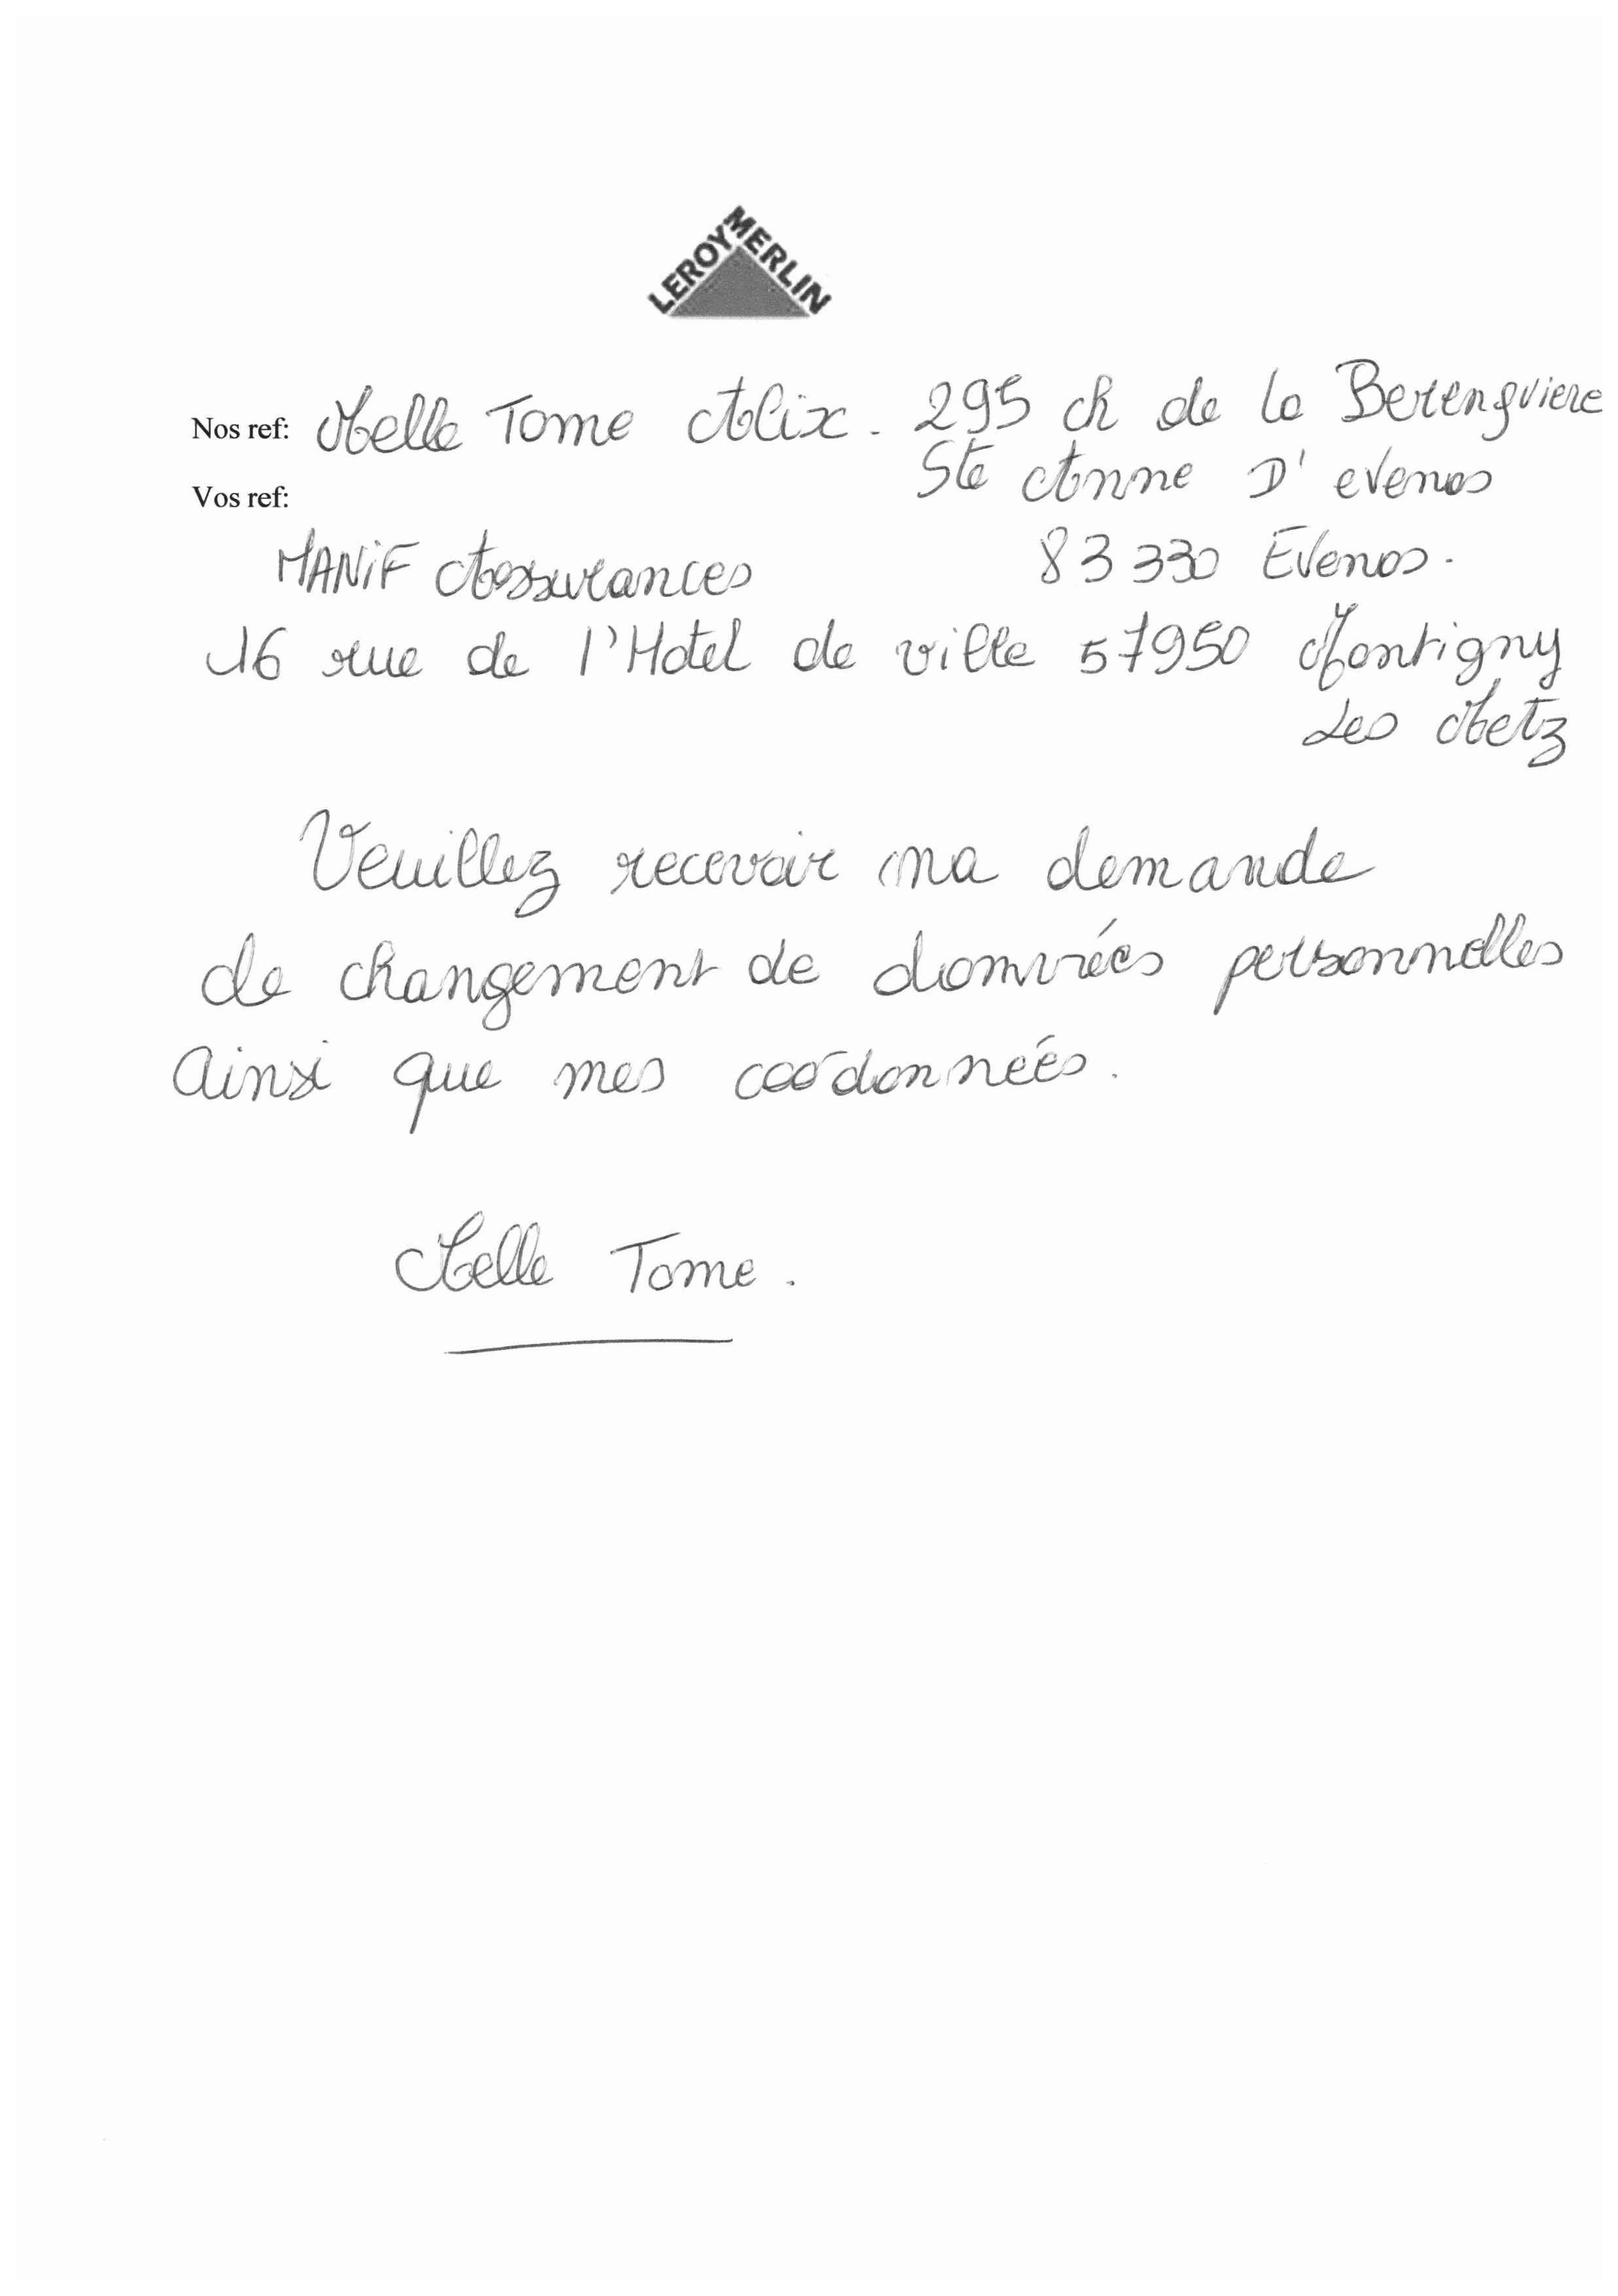 LEROY MERLIN
Nos ref: Melle Tome Alix. 295 ch de la Berenguiere
Ste Anne D'evenos
Vos ref:
83 330 Evenos.
MANiF Assurances
16 rue de l'Hotel de ville 57950 Montigny
Les Metz
Veuillez recevoir ma demande
de changement de données personnelles
Ainsi que mes coordonnées.
Melle Tome.